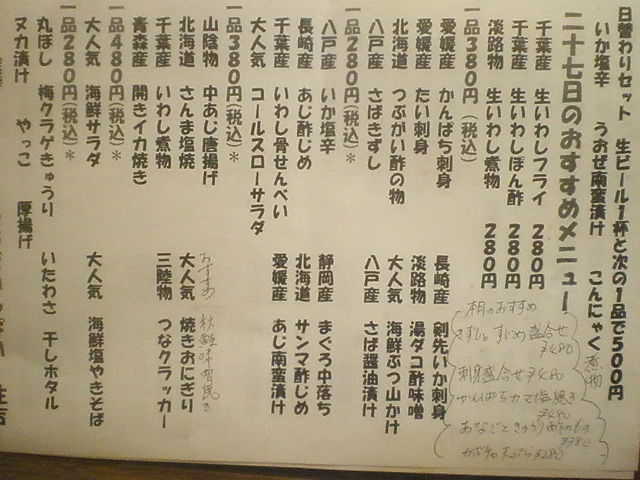 日替わりセット 生ビール1杯と次の1品で500円
いか塩辛 うおぜ南蛮漬け こんにゃく煮物
二十七日のおすすめメニュー
千葉産 生いわしフライ 280円
千葉産 生いわしぽん酢 280円
淡路物 生いわし煮物 280円
一品380円(税込)*
愛媛産 かんぱち刺身 長崎産 剣先いか刺身
愛媛産 たい刺身 淡路物 湯ダコ酢味噌
北海道 つぶがい酢の物 大人気 海鮮ぶつ山かけ
八戸産 さばきずし 八戸産 さば醤油漬け
一品280円(税込)*
八戸産 いか塩辛 静岡産 まぐろ中落ち
長崎産 あじ酢じめ 北海道 サンマ酢じめ
千葉産 いわし骨せんべい 愛媛産 あじ南蛮漬け
大人気 コールスローサラダ
一品380円(税込)*
山陰物 中あじ唐揚げ おすすめ
北海道 さんま塩焼 大人気 焼きおにぎり
千葉産 いわし煮物 三陸物 つなクラッカー
青森産 開きイカ焼き
一品480円(税込)*
大人気 海鮮サラダ 大人気 海鮮塩やきそば
一品280円(税込)*
丸ぼし 梅クラゲきゅうり いたわさ 干しホタル
ヌカ漬け やっこ 厚揚げ
本日のおすすめ
刺身盛合せ